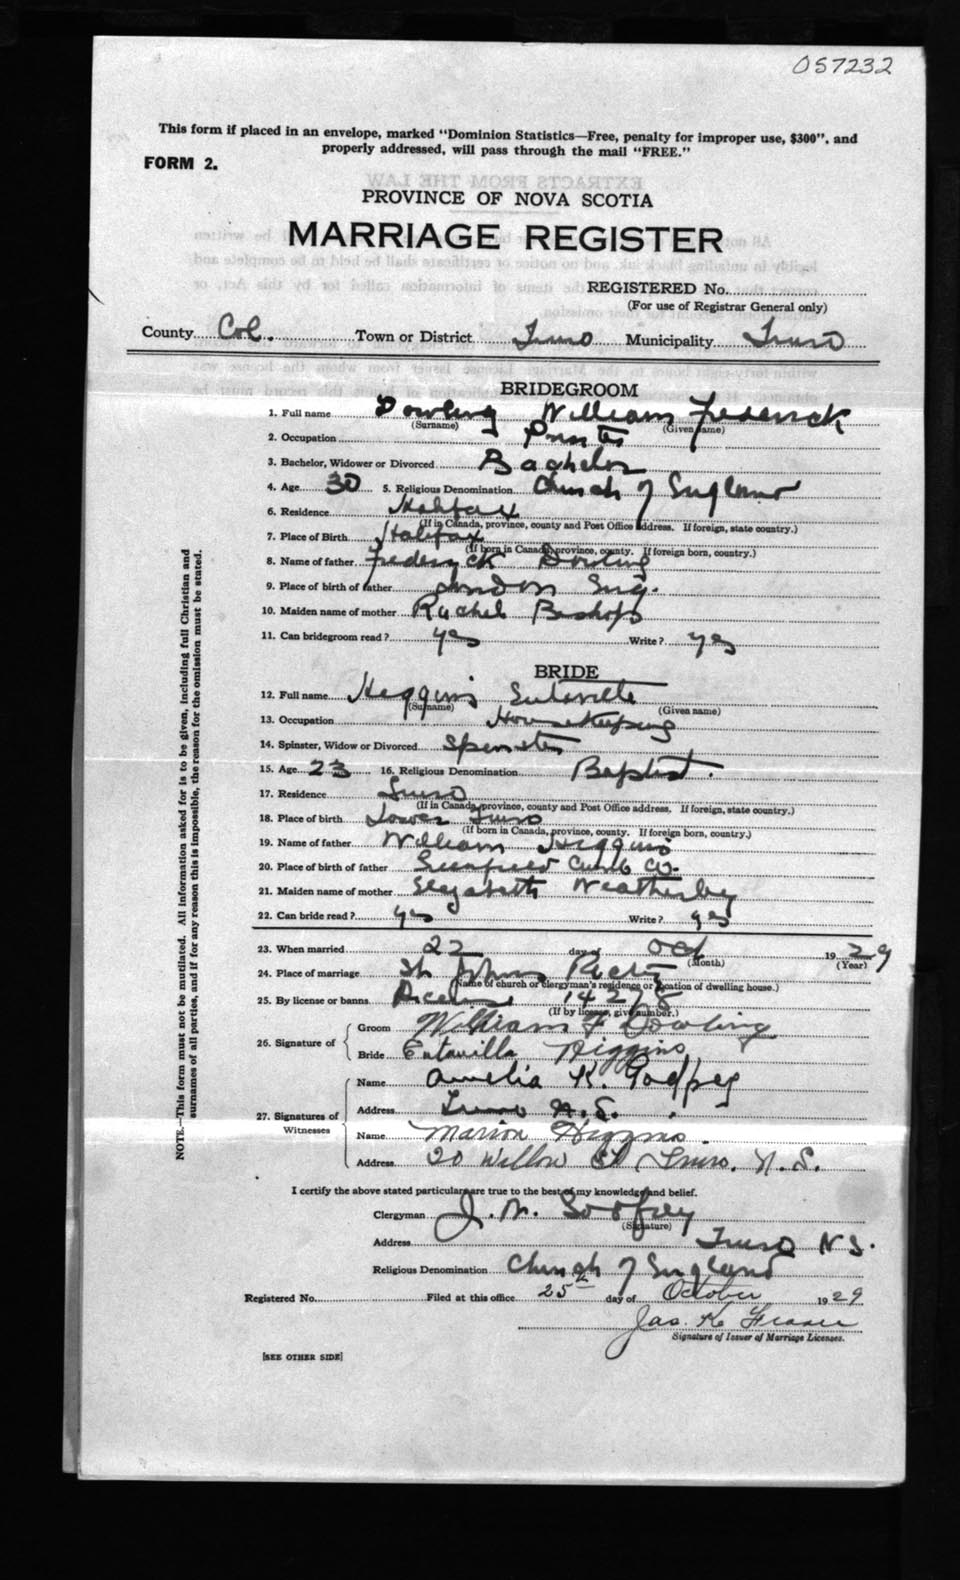 057232
This form if placed in an envelope, marked "Dominion Statistics—Free, penalty for improper use, $300", and
properly addressed, will pass through the mail "FREE."
FORM 2.
PROVINCE OF NOVA SCOTIA
MARRIAGE REGISTER
REGISTERED No.
(For use of Registrar General only)
County Col. Town or District Truro Municipality Truro
BRIDEGROOM
1. Full name Dowling William Frederick
(Surname) (Given name)
2. Occupation
3. Bachelor, Widower or Divorced Bachelor
4. Age 30 5. Religious Denomination Church of England
6. Residence Halifax
(If in Canada, province, county and Post Office address. If foreign, state country.)
7. Place of Birth Halifax
(If born in Canada, province, county. If foreign born, country.)
8. Name of father Frederick Dowling
9. Place of birth of father London Eng.
10. Maiden name of mother Rachel Bishop
11. Can bridegroom read? yes Write? yes
BRIDE
12. Full name Higgins
(Surname) (Given name)
13. Occupation Housekeeping
14. Spinster, Widow or Divorced Spinster
15. Age 23 16. Religious Denomination Baptist.
17. Residence Truro
(If in Canada, province, county and Post Office address. If foreign, state country.)
18. Place of birth Lower Truro
(If born in Canada, province, county. If foreign born, country.)
19. Name of father William Higgins
20. Place of birth of father Co.
21. Maiden name of mother Elizabeth Weatherby
22. Can bride read? yes Write? yes
23. When married 22 day of Oct 1929
(Month) (Year)
24. Place of marriage St Johns Rectory
(Name of church or clergyman's residence or location of dwelling house.)
25. By license or banns License 14278
(If by license, give number.)
26. Signature of Groom William F Dowling
Bride Eutavilla Higgins
27. Signatures of Witnesses Name Amelia K. Godfrey
Address Truro N.S.
Name Marion Higgins.
Address 20 Willow St Truro. N.S.
I certify the above stated particulars are true to the best of my knowledge and belief.
Clergyman J. W. Godfrey
(Signature)
Address Truro N S.
Religious Denomination Church of England
Registered No. Filed at this office 25th day of October 1929
Jas. K. Fraser
Signature of Issuer of Marriage Licenses.
[SEE OTHER SIDE]
NOTE.—This form must not be mutilated. All information asked for is to be given, including full Christian and
surnames of all parties, and if for any reason this is impossible, the reason for the omission must be stated.